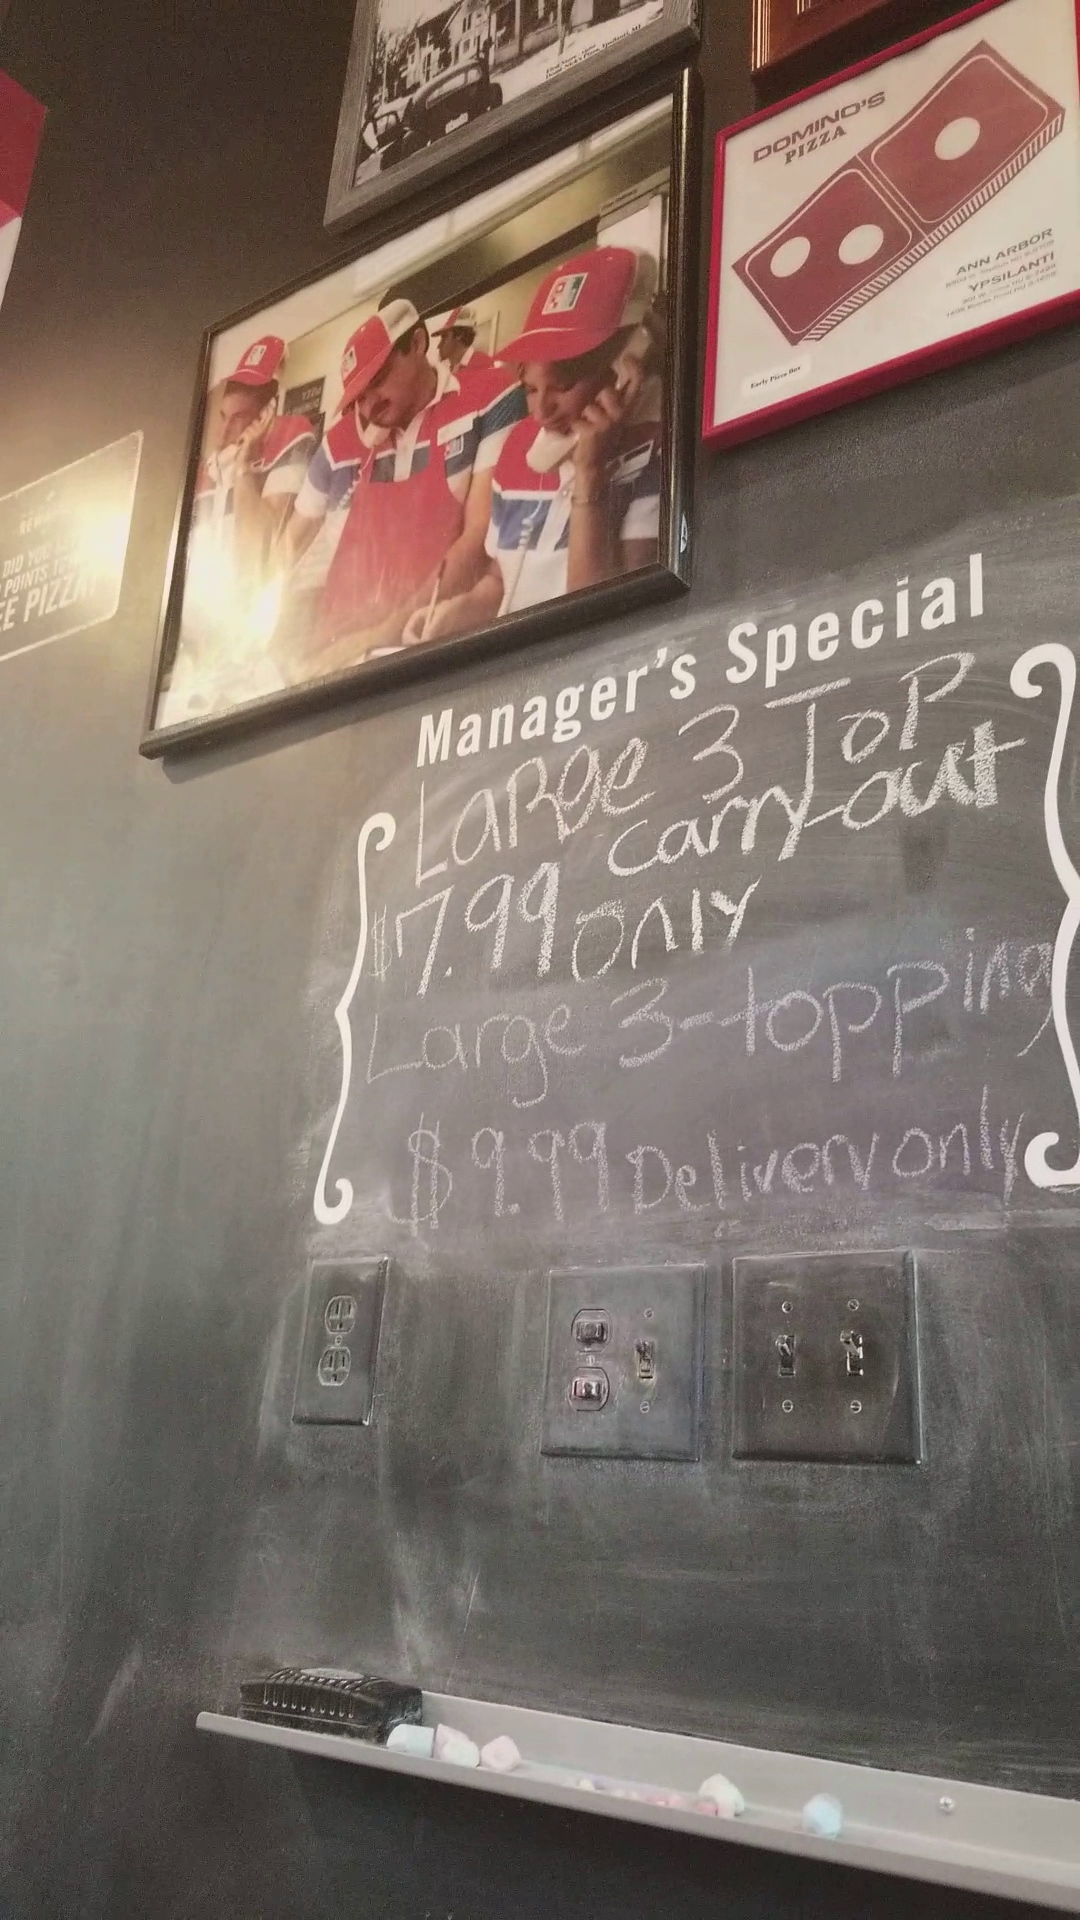 DOMINO'S
PIZZA
ANN ARBOR
YPSILANTI
Early Pizza Box
DID YOU
POINTS
EE PIZZA
Manager's Special
LARGE 3 ToP
carry-out
$7.99 only
Large 3-topping
$9.99 Delivery only